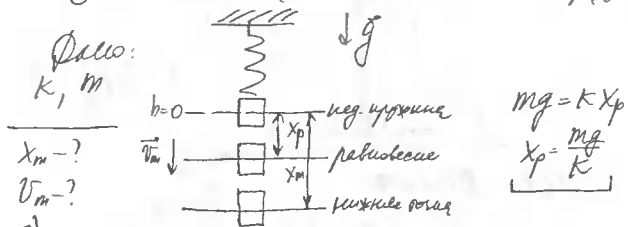 Дано:
k, m
x_m - ?
v_m - ?
↓ g⃗
h=0
нед. пружина
x_p
v⃗_m ↓
равновесие
x_m
нижняя точка
mg = k x_p
x_p = mg/k